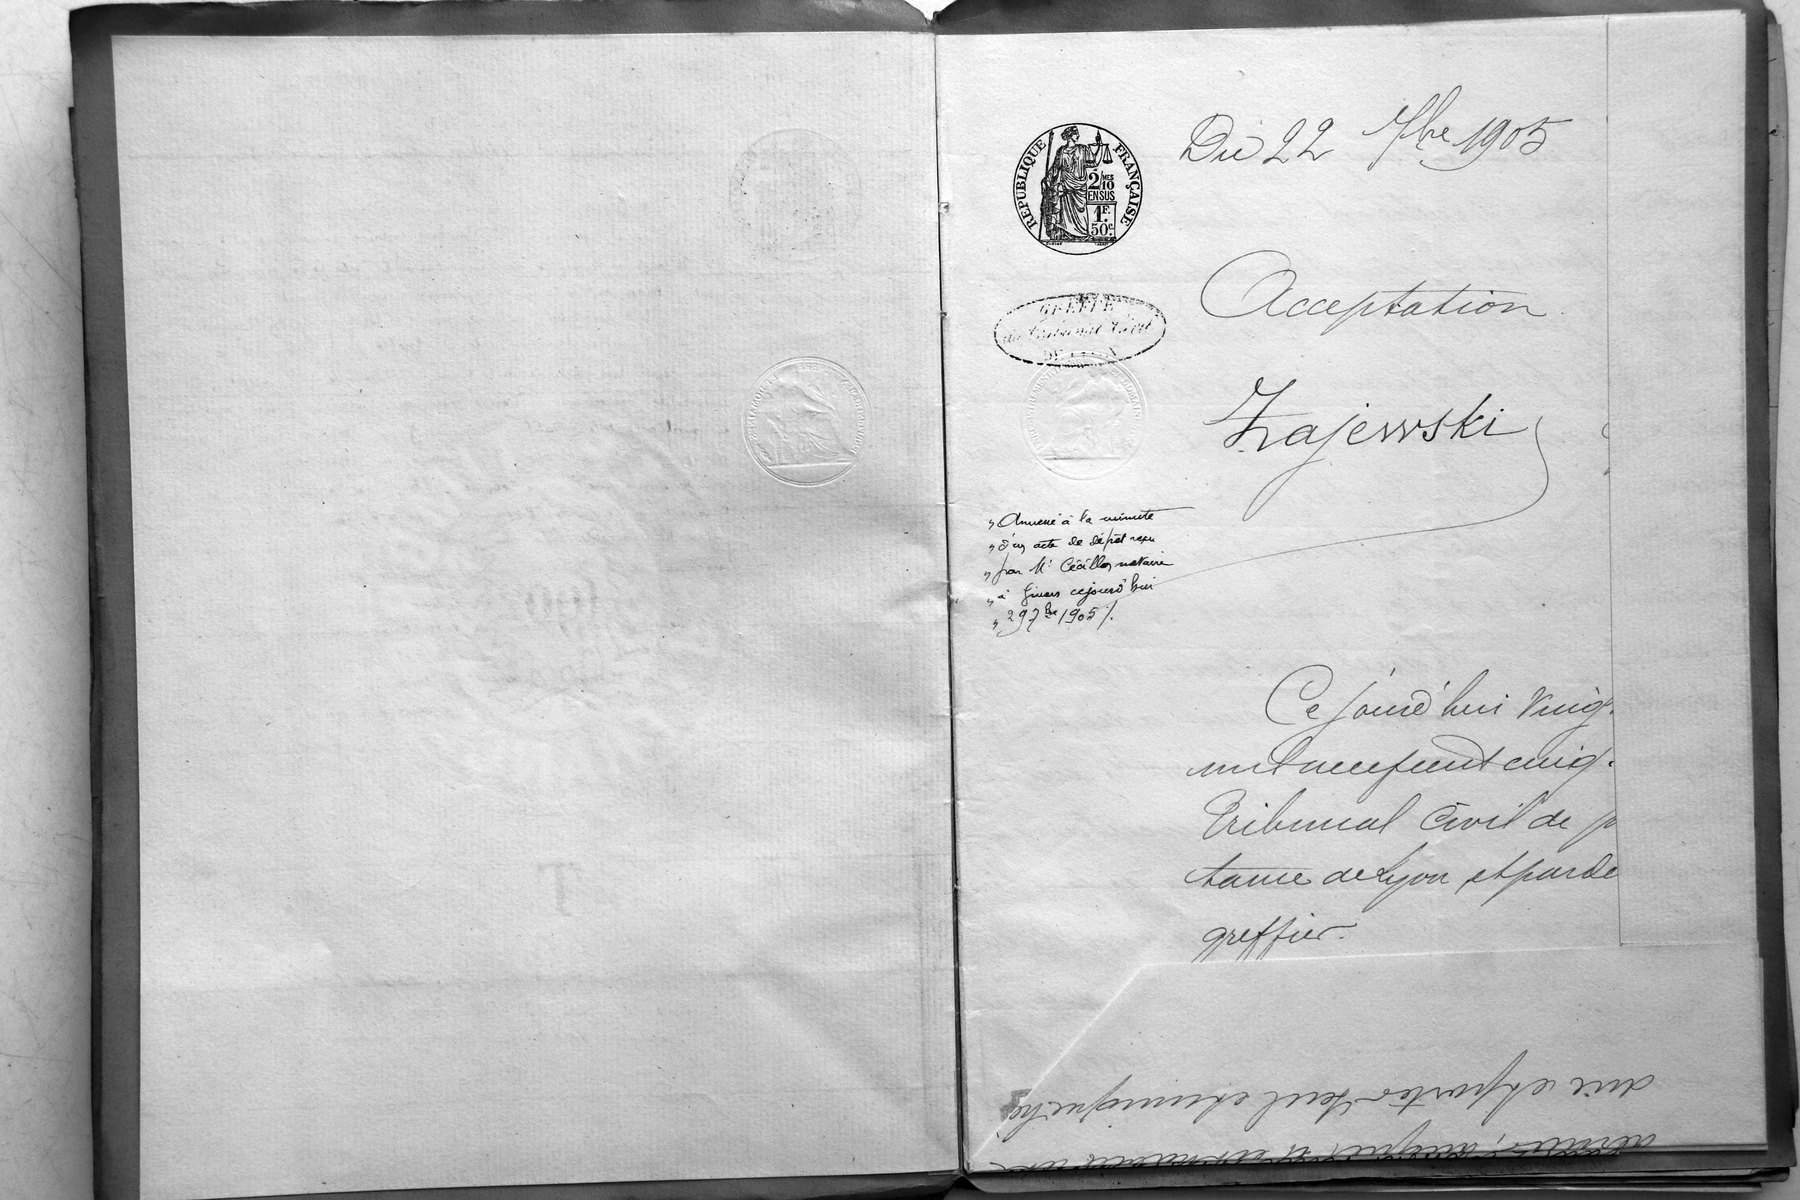 Du 22 7bre 1905
RÉPUBLIQUE FRANÇAISE
2/10 MES
EN SUS
1F.
50c.
Acceptation
GREFFE
du Tribunal Civil
DE LYON
Zajewski
" Annexé à la minute
" d'un acte de dépôt reçu
" par Me notaire
" à Givors cejourd'hui
" 29 7bre 1905 /.
Ce jourd'hui vingt
mil neuf cent cinq.
Tribunal Civil de p
tance de Lyon et par de
greffier.